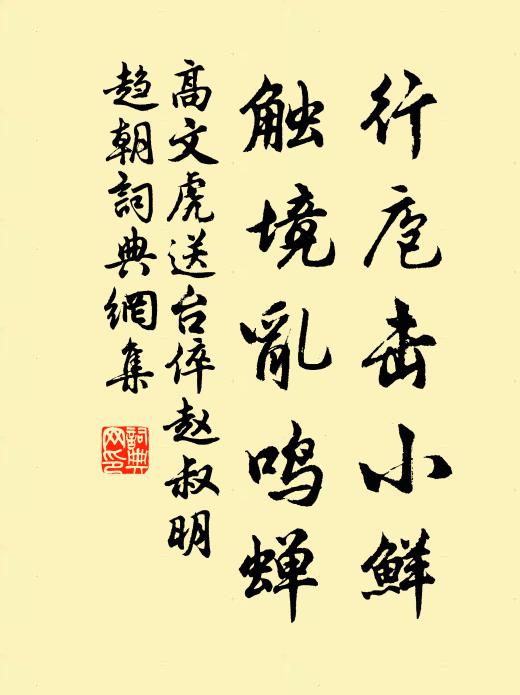 行庖击小鮮
触境亂鸣蝉
高文虎送台倅赵叔明
趋朝詞典網集
詞典
网印